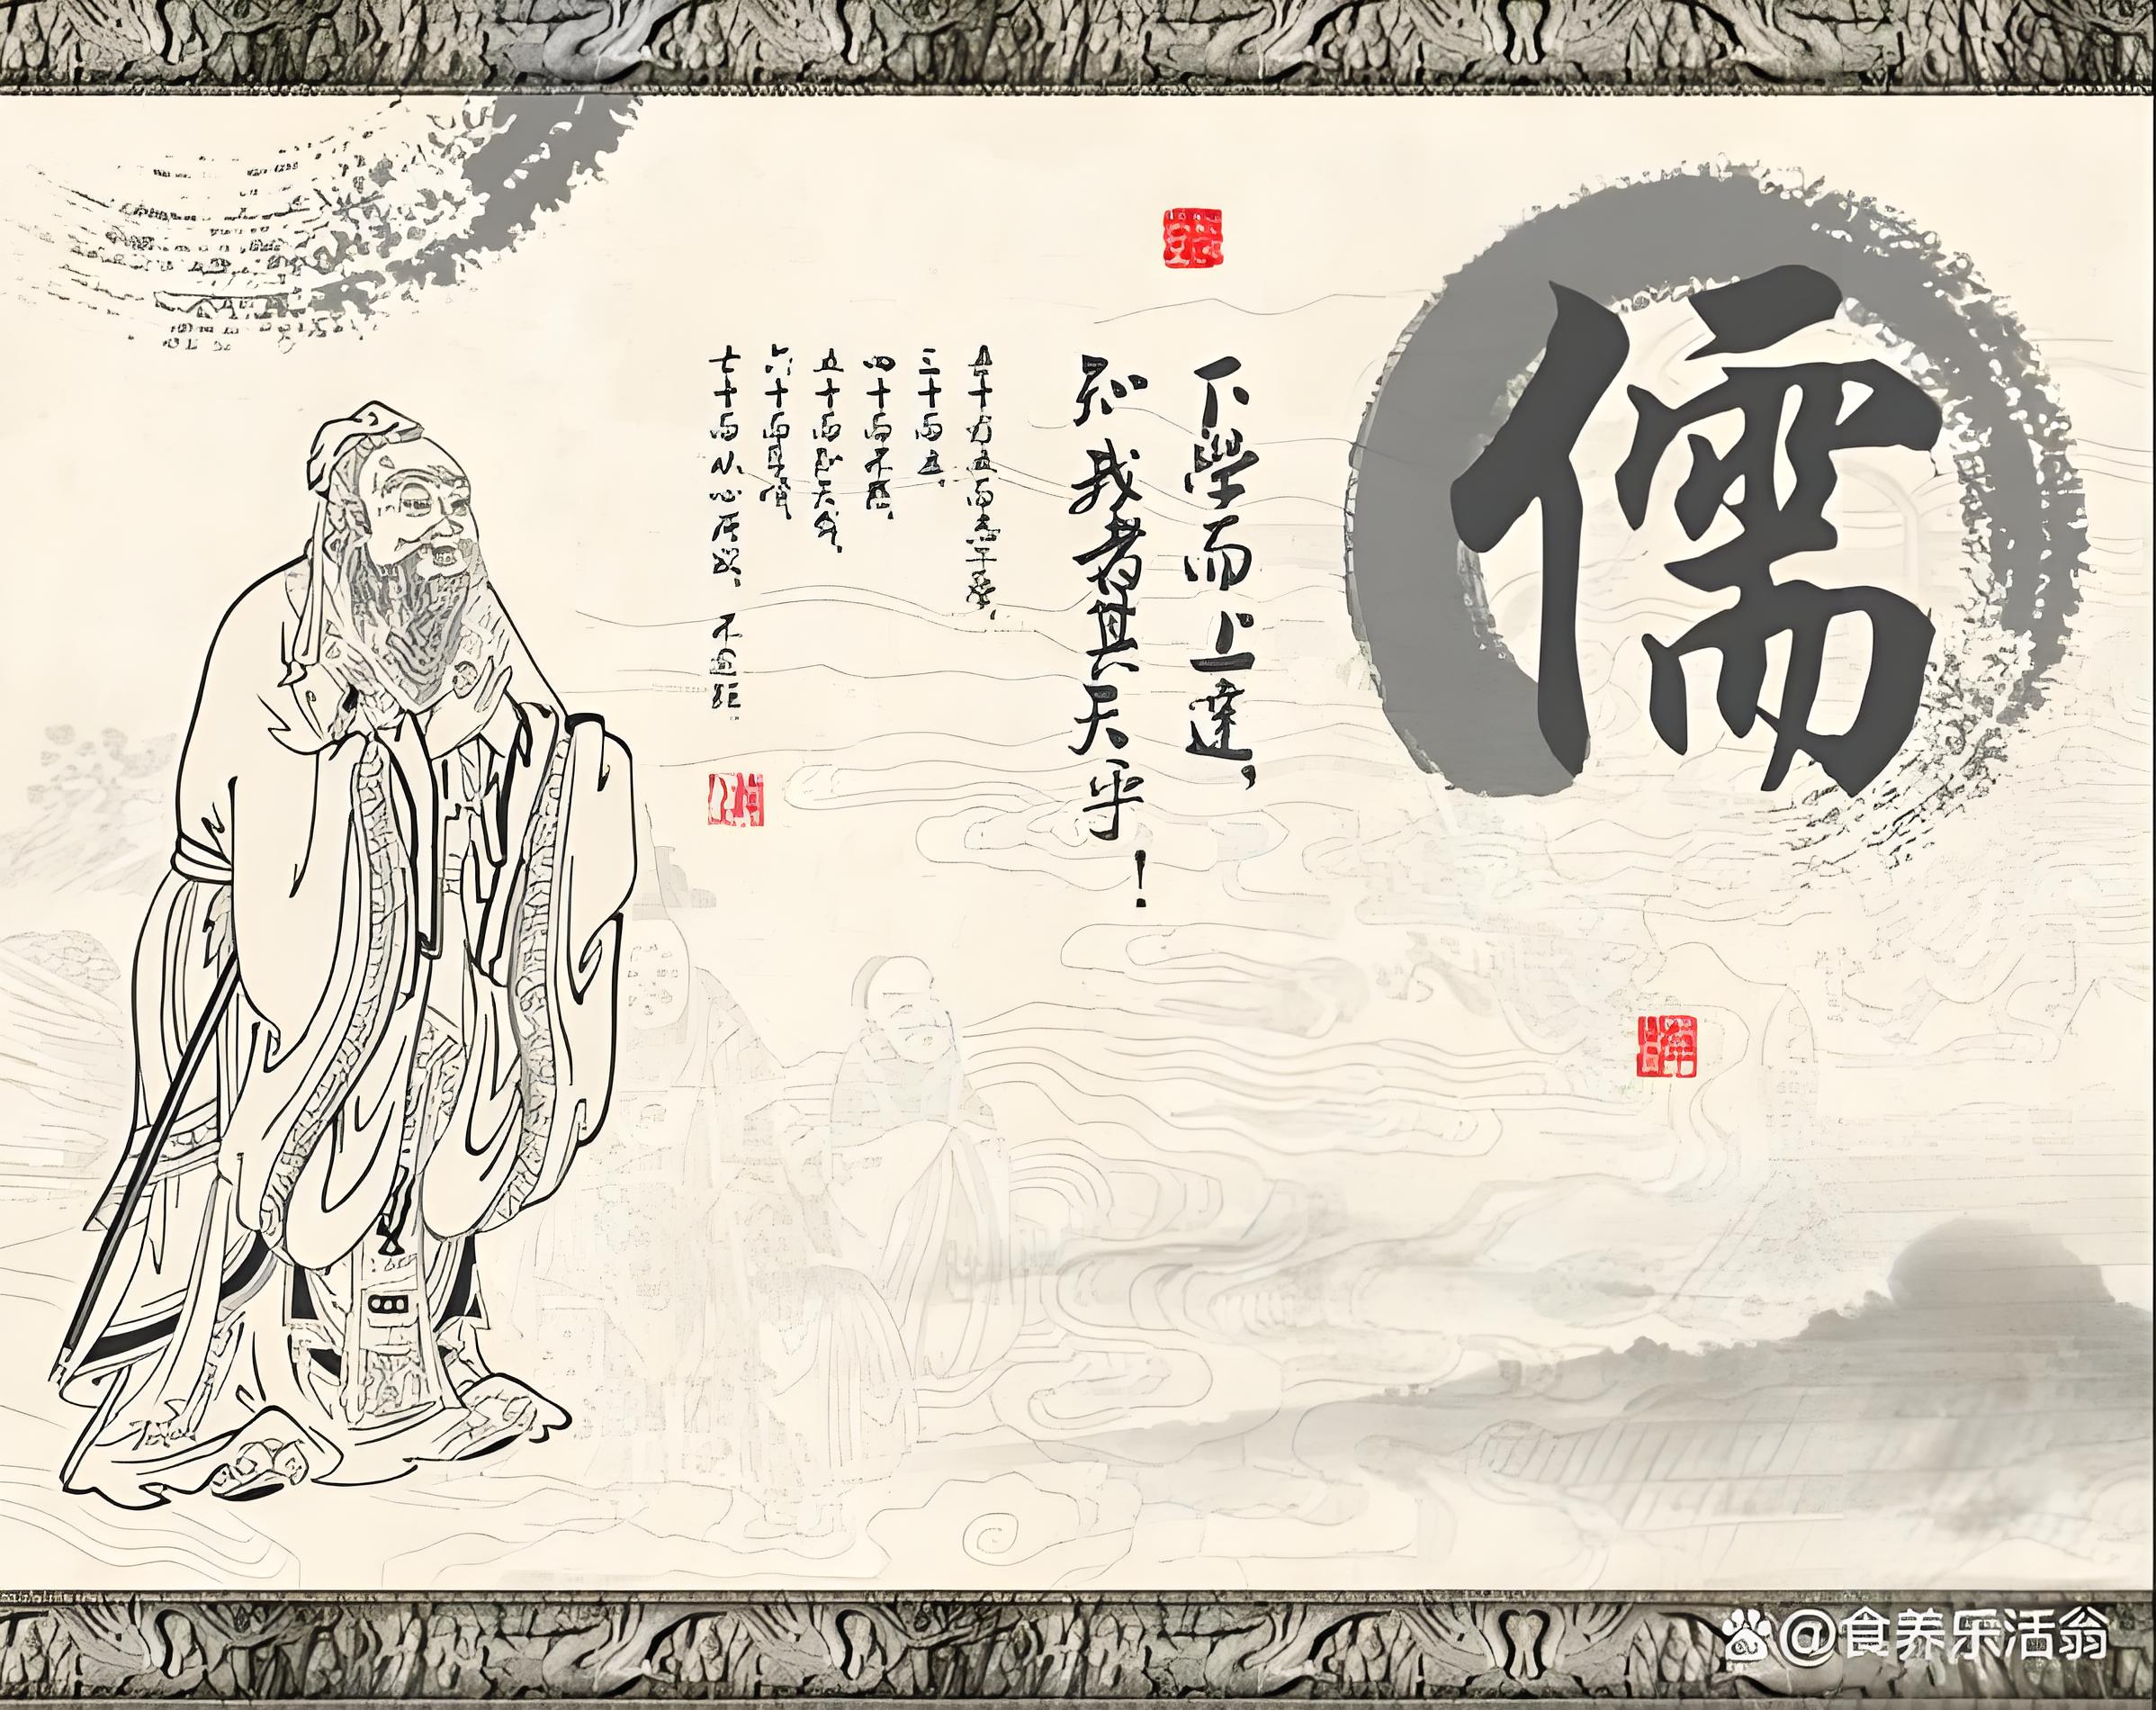 儒
下學而上達，
知我者其天乎！
吾十有五而志于學，
三十而立，
四十而不惑，
五十而知天命，
六十而耳順，
七十而从心所欲，不逾矩。
@食养乐活翁